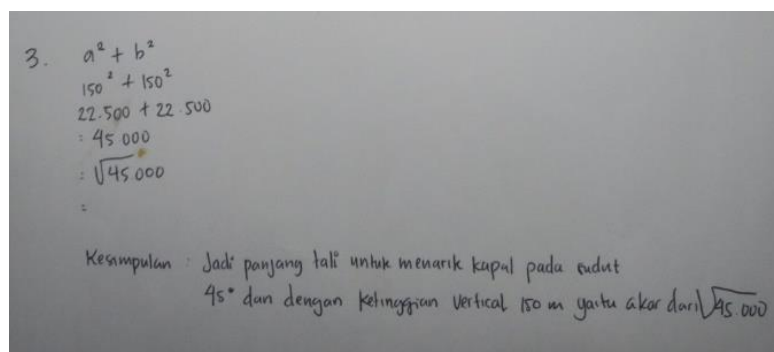 3. a² + b²
150² + 150²
22.500 + 22.500
: 45 000
: √45.000
:
Kesimpulan : Jadi panjang tali untuk menarik kapal pada sudut
45° dan dengan ketinggian vertical 150 m yaitu akar dari √45.000